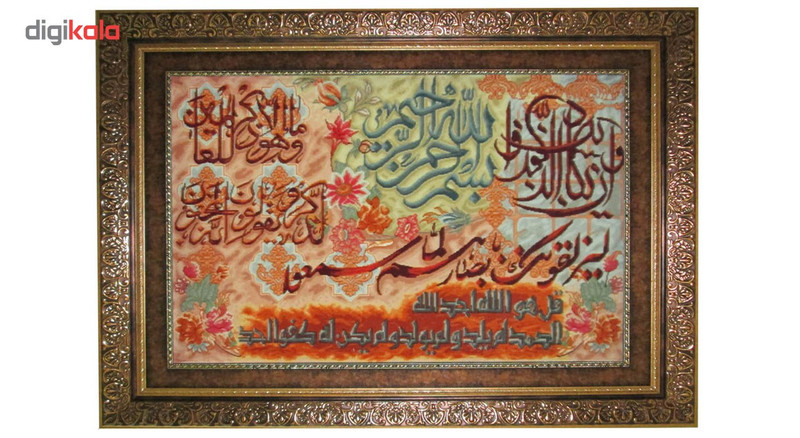 digikala
بسم الله الرحمن الرحيم
وإن يكاد الذين كفروا
ليزلقونك بأبصارهم لما سمعوا
الذكر ويقولون إنه لمجنون
وما هو إلا ذكر للعالمين
قل هو الله احد الله
الصمد لم يلد و لم يولد و لم يكن له كفوا احد